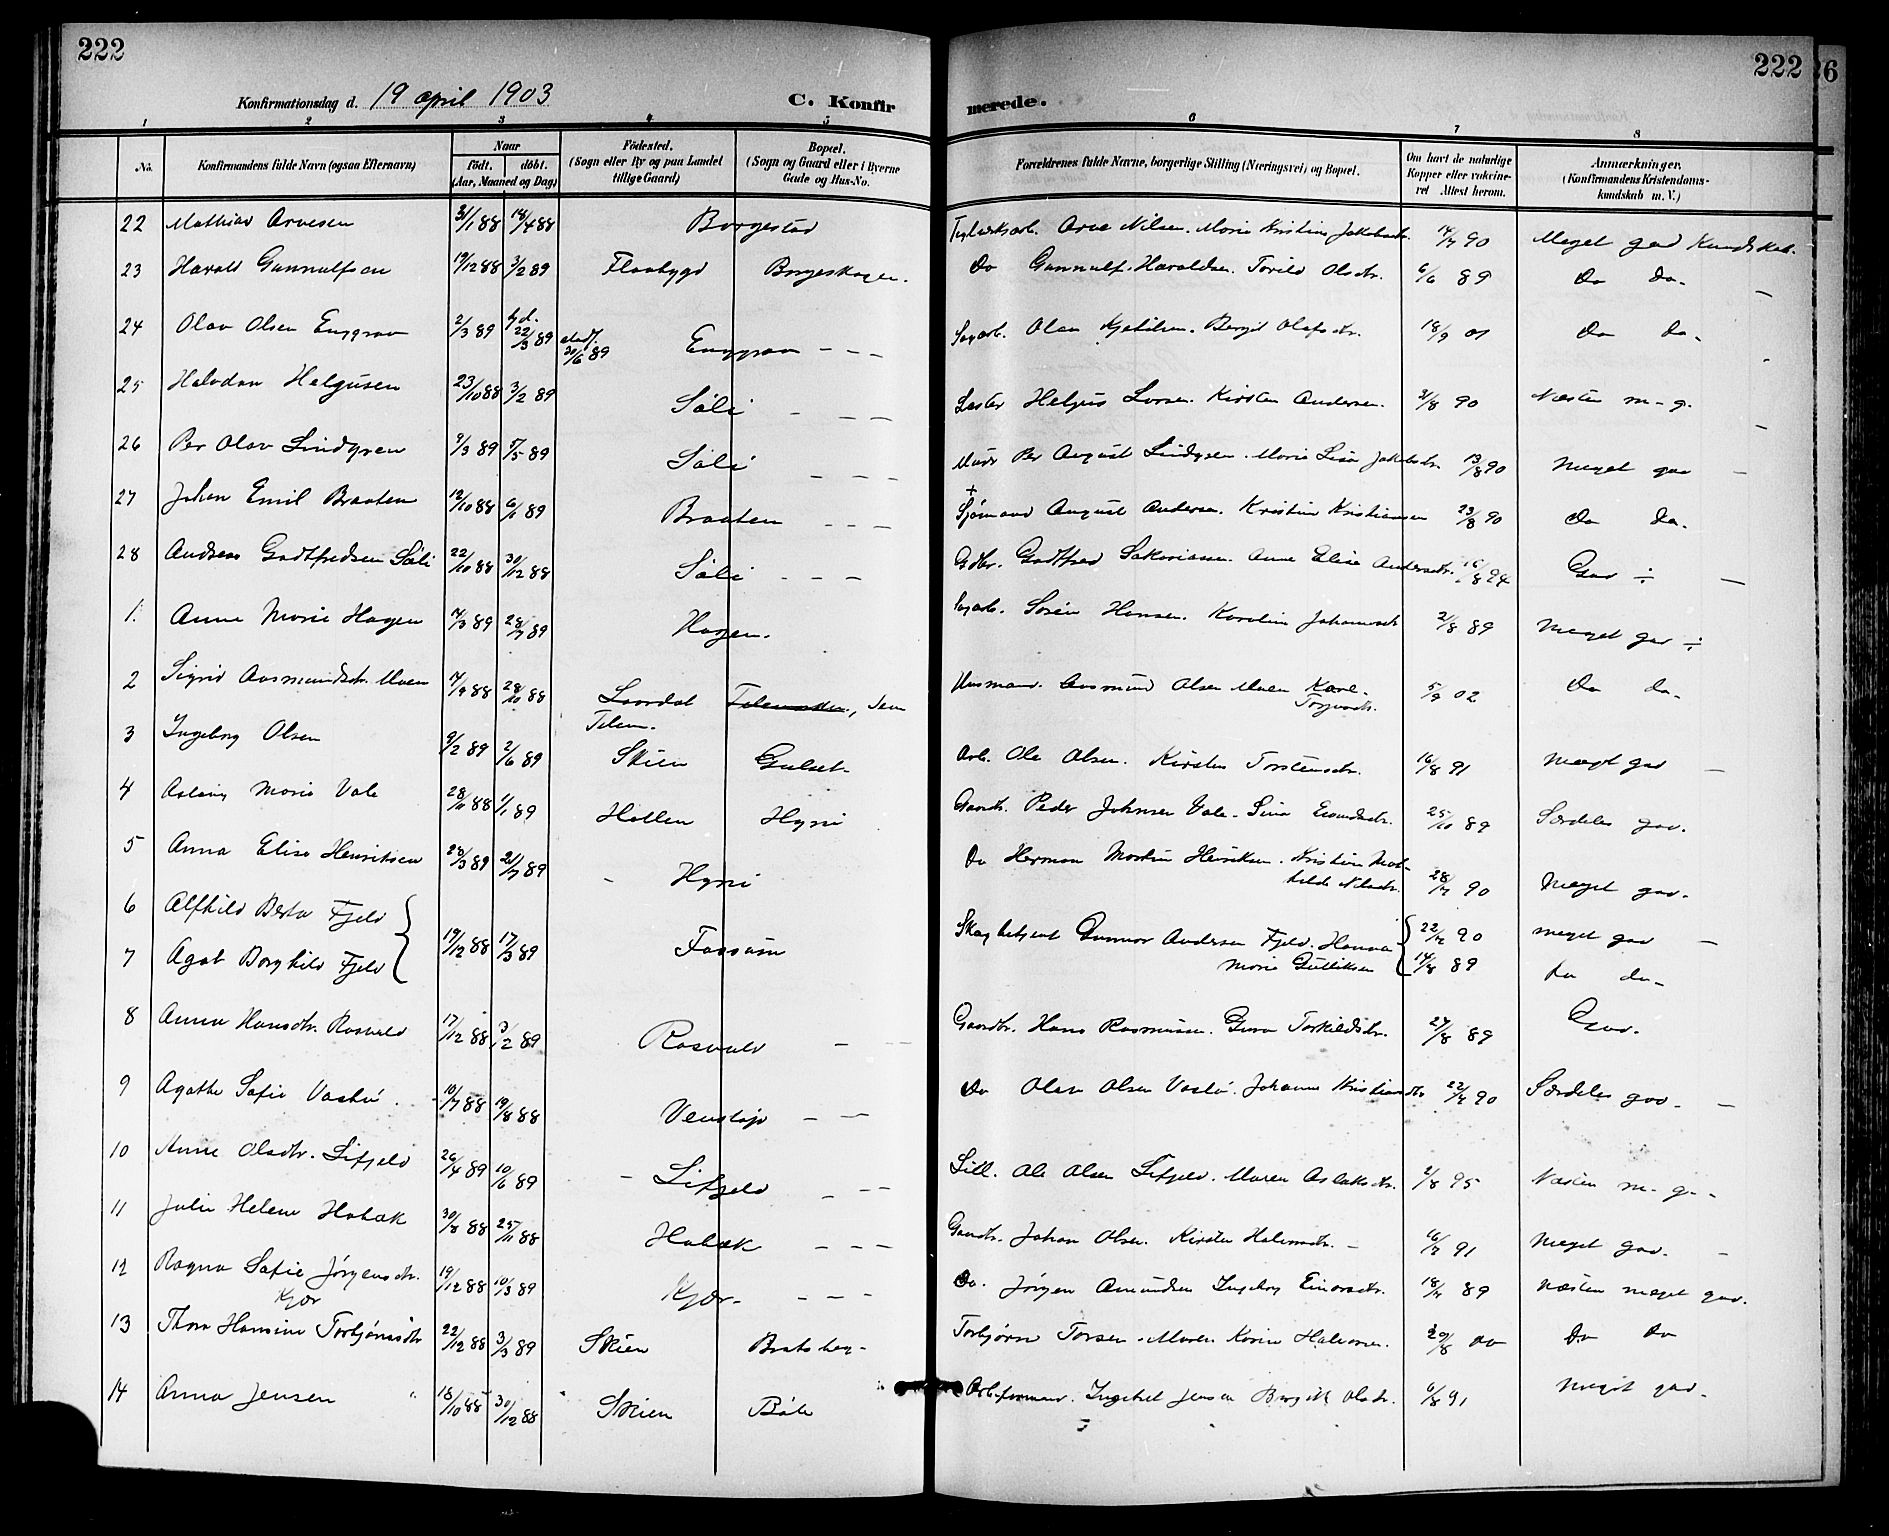 222
222
26
Konfirmationsdag d. 19 april 1903
C. Konfir
merede.
1 2 3 4 5 6 7 8
No. Konfirmandens fulde Navn (ogsaa Efternavn) Naar født. døbt. (Aar, Maaned og Dag) Fødested. (Sogn eller By og paa Landet tillige Gaard) Bopæl. (Sogn og Gaard eller i Byerne Gade og Hus-No. Forældrenes fulde Navne, borgerlige Stilling (Næringsvei) og Bopæl. Om havt de naturlige Kopper eller vakcineret Attest herom. Anmærkninger. (Konfirmandens Kristendomskundskab m. V.)
22 Mathias Arvesen 31/1 88 18/4 88 Borgestad Teglverksarb. Arve Nilsen. Marie Kristine Jakobsdtr. 14/7 90 Meget god Kundskab.
23 Harald Gunnulfsen 19/12 88 3/2 89 Flaabygd Borgeskogen. Do Gunnulf Haraldsen. Torild Olsdtr. 6/6 89 Do do. —
24 Olav Olsen Enggrav 2/3 89 hjd. 22/3 89 stadf. 30/6 89 Enggrav - - - Sagarb. Olav Kjetilsen. Bergit Olafsdtr. 18/9 01 Do do.
25 Halvdan Helgesen 23/10 88 3/2 89 Sæli - — — Helgus Larsen. Kirsten Andersen. 31/8 90 Næsten m-g. —
26 Per Olav Lindgren 9/3 89 5/5 89 Sæli - - - Murer Per August Lindgren. Maria Lisa Jakobsdtr. 13/8 90 Meget god —
27 Johan Emil Braaten 12/10 88 6/1 89 Braaten - - - + Sjømand August Andersen. Kristine Kristiansen 23/8 90 Do do.
28 Andreas Godtfredsen Sæli 22/10 88 30/12 88 Sæli - - - Gdbr. Godtfred Sakariassen. Anne Elise Andersdtr. 16/8 94 God ÷ —
1. Anne Marie Hagen 7/3 89 28/7 89 Hagen. Sagarb. Søren Hansen. Karoline Johannesdtr 2/8 89 Meget god ÷
2 Sigrid Aasmundsdtr. Moen 14/9 88 28/10 88 Laardal Telem. Telemarken, dem Husmand. Aasmund Olsen Moen Kari Torgusdtr. 5/9 02 Do do.
3 Ingeborg Olsen 9/2 89 2/6 89 Skien Gulset. Arb. Ole Olsen. Kirsten Torstensdtr. 16/8 91 Meget god —
4 Aslaug Marie Vale 28/10 88 1/1 89 Hollen Hyni Gaardbr. Peder Johnsen Vale. Sina 25/10 89 Særdeles god.
5 Anna Elise Henriksen 28/3 89 21/7 89 - Hyni Do Herman Martin Henriksen. Kristine Mathilde Nilsdtr. 28/7 90 Meget god.
6 Alfhild Berta Fjeld 19/12 88 17/3 89 Fossum Skogbetjent Gunnar Andersen Fjeld. Hanna Marie Gulliksen 22/12 90 Meget god —
7 Agot Borghild Fjeld 14/8 89 do do.
8 Anna Hansdtr. Rasvald 17/12 88 3/2 89 Rasvald — — Gaardbr. Hans Rasmussen. Guro Torkildsdtr. 27/8 89 God.
9 Agathe Sofie Vastvei. 10/7 88 19/8 88 Venstøp - — Do Olav Olsen Johanne Kristiansdtr 22/7 90 Særdeles god. —
10 Anne Olsdtr. Lifjeld 26/4 89 10/6 89 - Lifjeld - — Sell. Ole Olsen Lifjeld. Maren Aslaksdtr. 2/8 95 Næsten m. g. -
11 Julie Helene Hobæk 30/8 88 25/11 88 Hobæk - - - Gaardbr. Johan Olsen. Kirsten Halvorsdtr. - 16/7 91 Meget god. -
12 Ragna Sofie Jørgensdtr. Kjær 19/12 88 10/3 89 Kjær. - - - Do. Jørgen Amundsen Ingeborg Einarsdtr. 18/7 89 Næsten meget god.
13 Thora Hansine Torbjørnsdtr 22/12 88 3/3 89 Skien Bratsberg Torbjørn Torsen. Maren Karine Halvorsen. 29/8 00 Do do
14 Anna Jensen 18/10 88 30/12 88 Skien Bøle Arb.formand. Ingebret Jensen Bergitte Olsdtr. 6/8 91 Meget god.